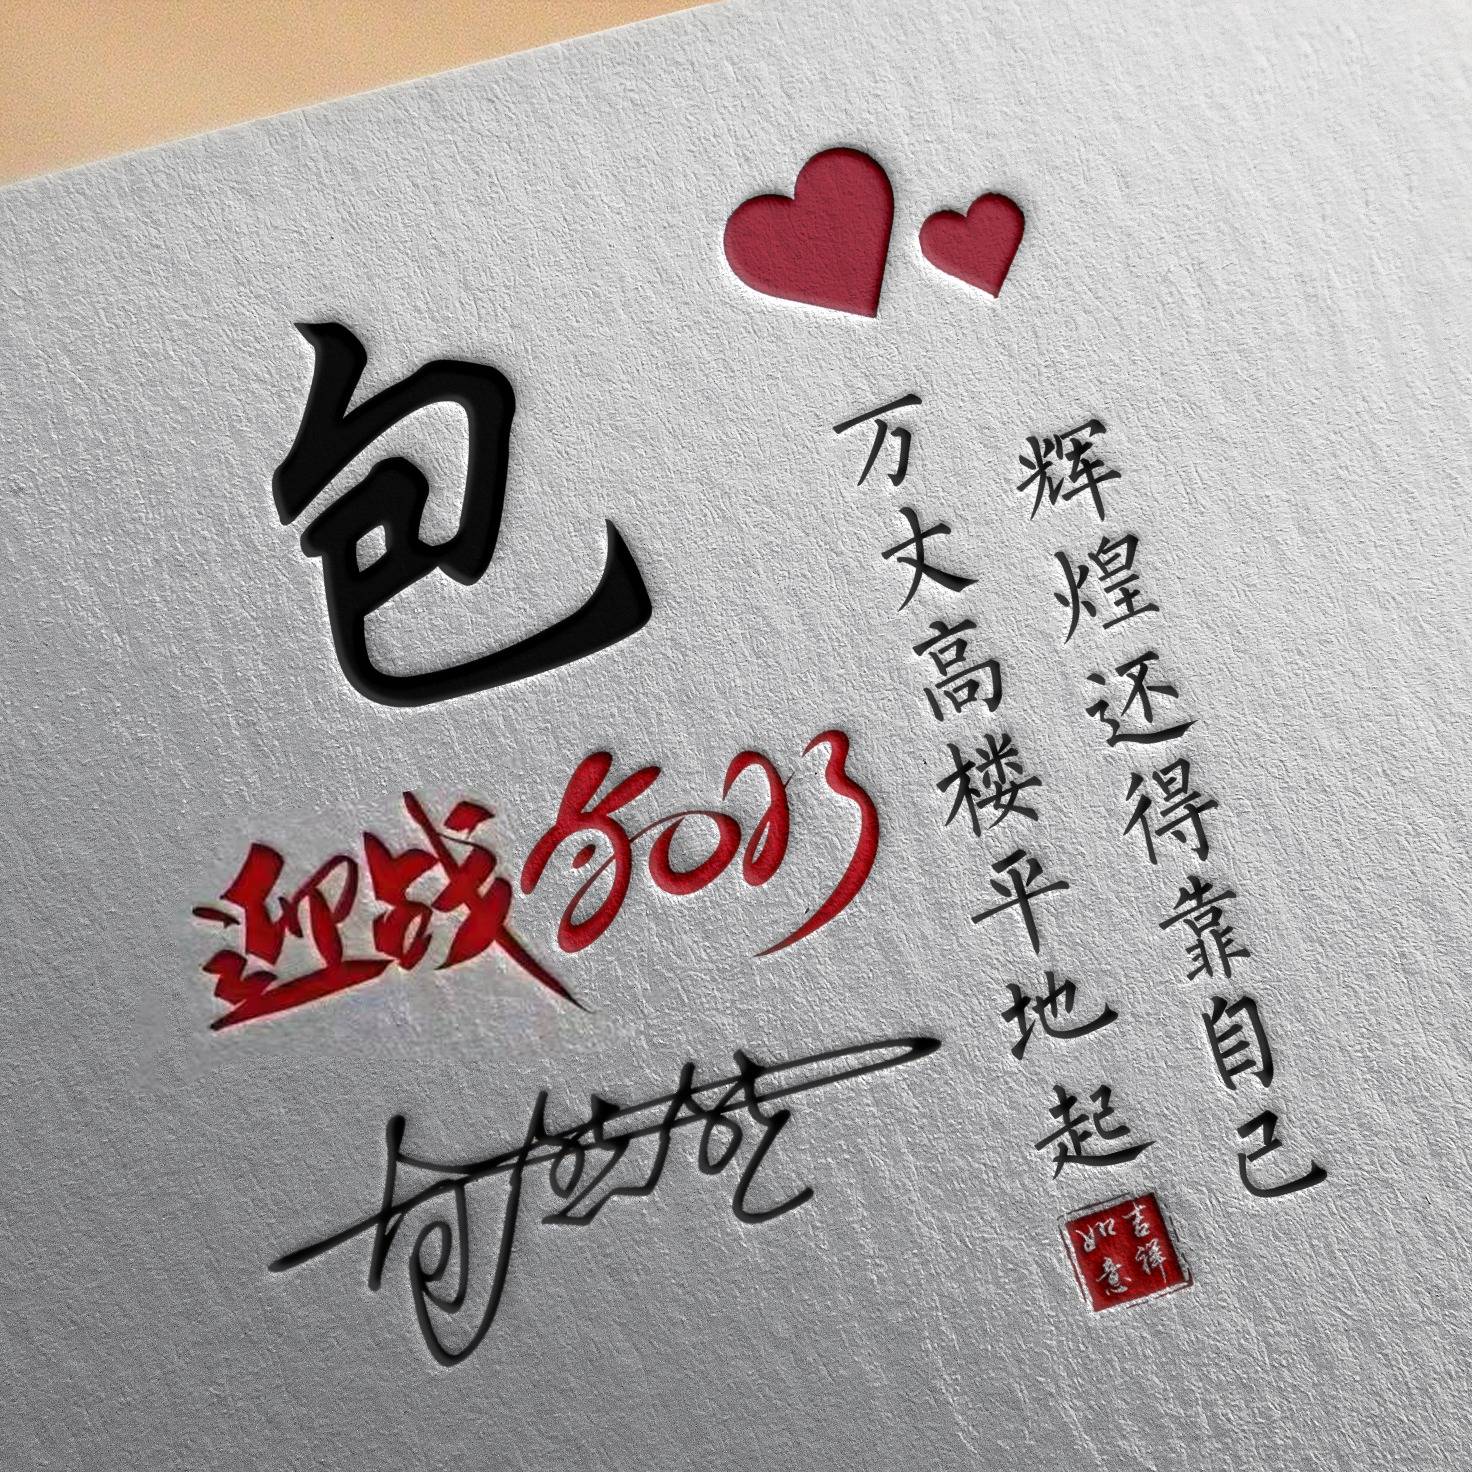 包
迎战2023
万丈高楼平地起
辉煌还得靠自己
吉祥
如意